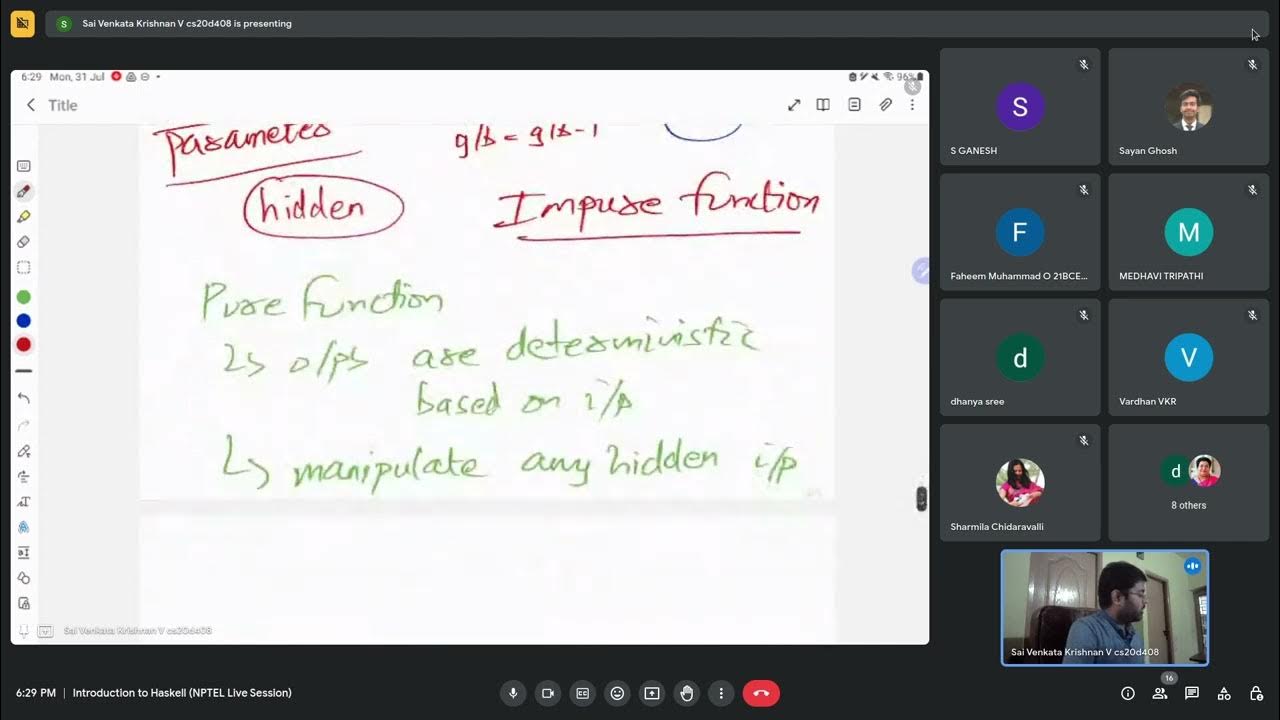 Sai Venkata Krishnan V cs20d408 is presenting
6:29 Mon, 31 Jul
96%
Title
Parameter
g/b = g/b - 1
hidden
Impure function
Pure function
↳ o/ps are deterministic
based on i/p
↳ manipulate any hidden i/p
Sai Venkata Krishnan V cs20d408
S
S GANESH
Sayan Ghosh
F
Faheem Muhammad O 21BCE...
M
MEDHAVI TRIPATHI
d
dhanya sree
V
Vardhan VKR
Sharmila Chidaravalli
d
8 others
Sai Venkata Krishnan V cs20d408
6:29 PM | Introduction to Haskell (NPTEL Live Session)
16